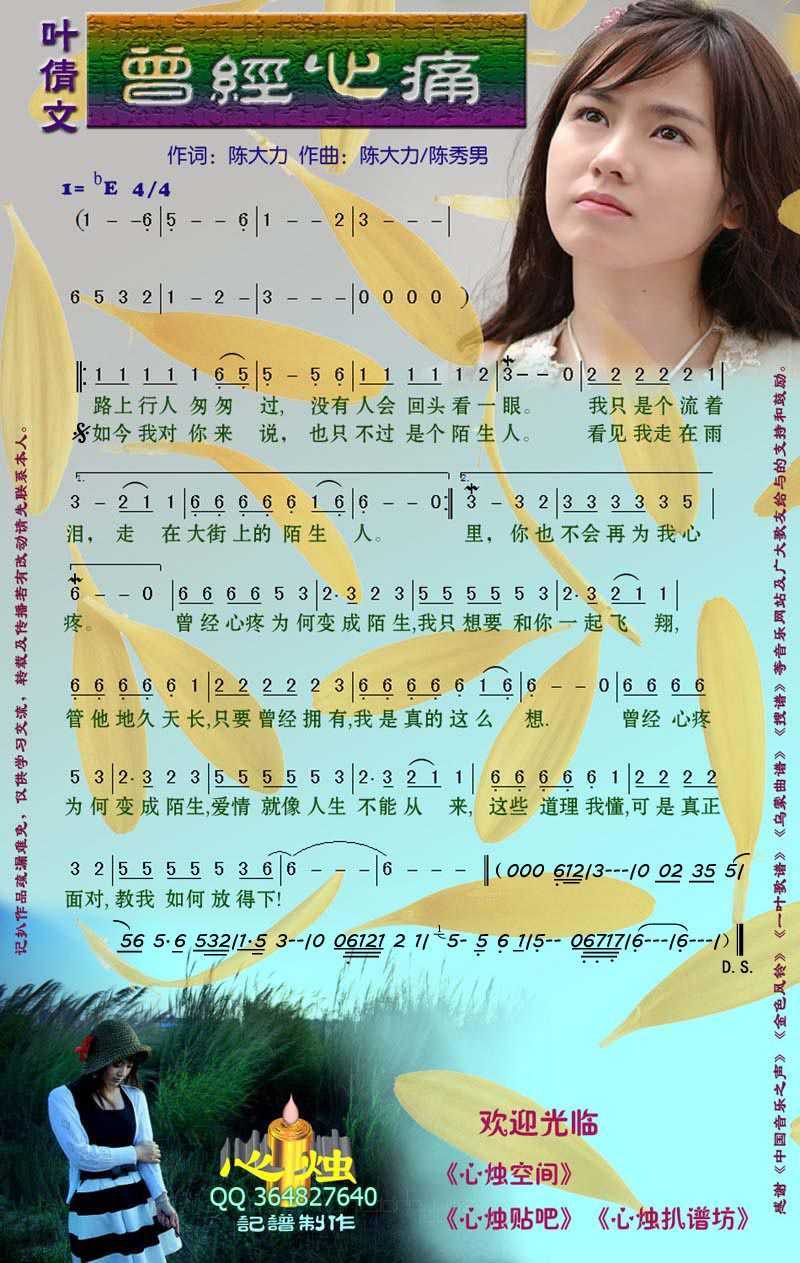 叶倩文
曾經心痛
作词：陈大力 作曲：陈大力/陈秀男
1= bE 4/4
(1 - -6|5 - - 6|1 - - 2|3 - - -|
6 5 3 2|1 - 2 -|3 - - -|0 0 0 0 )
‖: 1 1 1 1 1 6 5|5 - 5 6|1 1 1 1 1 1 2|3 - - 0|2 2 2 2 2 1|
路上行人 匆匆 过, 没有人会 回头看一眼。 我只是个流着
如今我对 你来 说，也只不过 是个陌生人。 看见我走在雨
1. 2.
3 - 2 1 1|6 6 6 6 6 1 6|6 - - 0:‖3 - 3 2|3 3 3 3 3 5|
泪，走 在大街上的 陌生 人。 里，你也不会再为我心
6 - - 0 |6 6 6 6 5 3|2· 3 2 3|5 5 5 5 5 3|2· 3 2 1 1|
疼。 曾经心疼为何变成陌生,我只想要 和你一起飞 翔,
6 6 6 6 6 1|2 2 2 2 2 3|6 6 6 6 6 1 6|6 - - 0|6 6 6 6
管他地久天长,只要曾经拥有,我是真的这么 想. 曾经 心疼
5 3|2· 3 2 3|5 5 5 5 5 3|2· 3 2 1 1|6 6 6 6 6 1|2 2 2 2
为何变成陌生,爱情 就像人生 不能从 来，这些 道理我懂,可是真正
3 2|5 5 5 5 5 3 6|6 - - -|6 - - - ‖(000 612/3---/0 02 35 5/
面对,教我 如何放得下!
56 5·6 532/1·5 3--/0 06121 2 1/ 1 5- 5 6 1/5-- 06717/6---/6---/)‖
D.S.
记扒作品疏漏难免，仅供学习交流，转载及传播若有改动请先联系本人。
感谢《中国音乐之声》《金色风铃》《一叶歌谱》《乌蒙曲谱》《搜谱》等音乐网站及广大歌友给与的支持和鼓励。
心烛
QQ 364827640
記譜制作
欢迎光临
《心烛空间》
《心烛贴吧》《心烛扒谱坊》